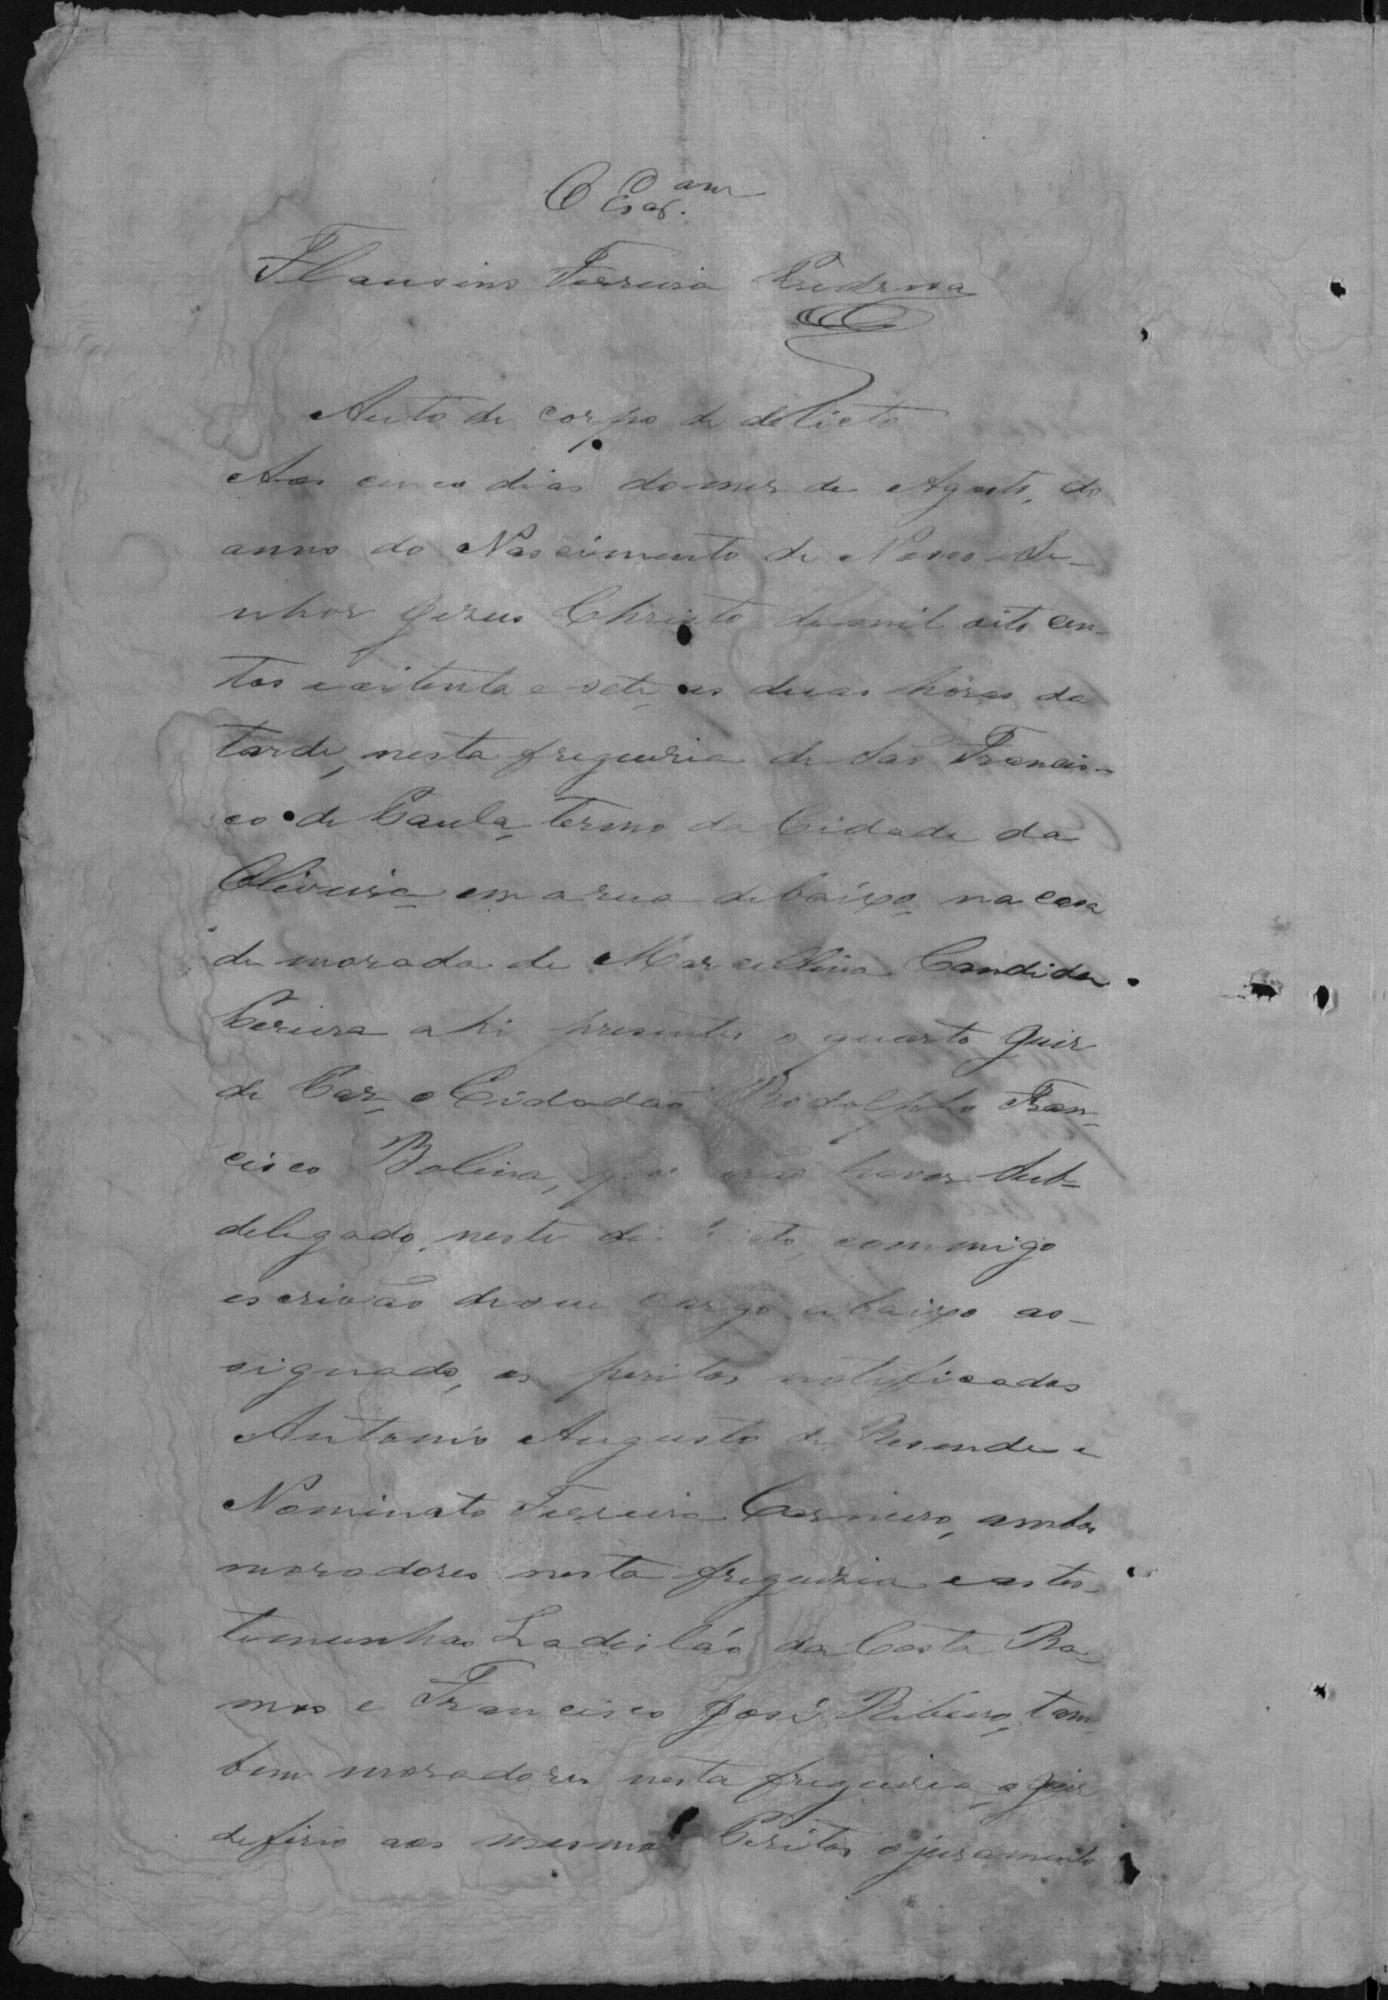 O Escr.am
Flausino Ferreira
Auto de corpo de delicto
Aos cinco dias do mes de Agosto, do
anno do Nascimento de Nosso Se-
nhor Jezus Christo de mil oito cen-
tos e oitenta e sete, as duas horas da
tarde, nesta freguezia de São Francis-
co de Paula, termo da Cidade da
Oliveira, em a rua debaixo, na casa
de morada de Marcellina Candida
Pereira ahi presentes o quarto Juiz
de Paz, o Cidadão Rodolpho Fran-
cisco Bolina, por não haver Sub-
delegado, neste districto, commigo
escrivão de seu cargo abaixo as-
signado, os peritos notificados
Antonio Augusto de Resende e
Nominato Ferreira Carneiro, ambos
moradores nesta freguezia e as tes-
temunhas Ladisláo da Costa Ra-
mos e Francisco José Ribeiro, tam-
bem moradores nesta freguezia, o Juiz
deferio aos mesmos Peritos o juramento